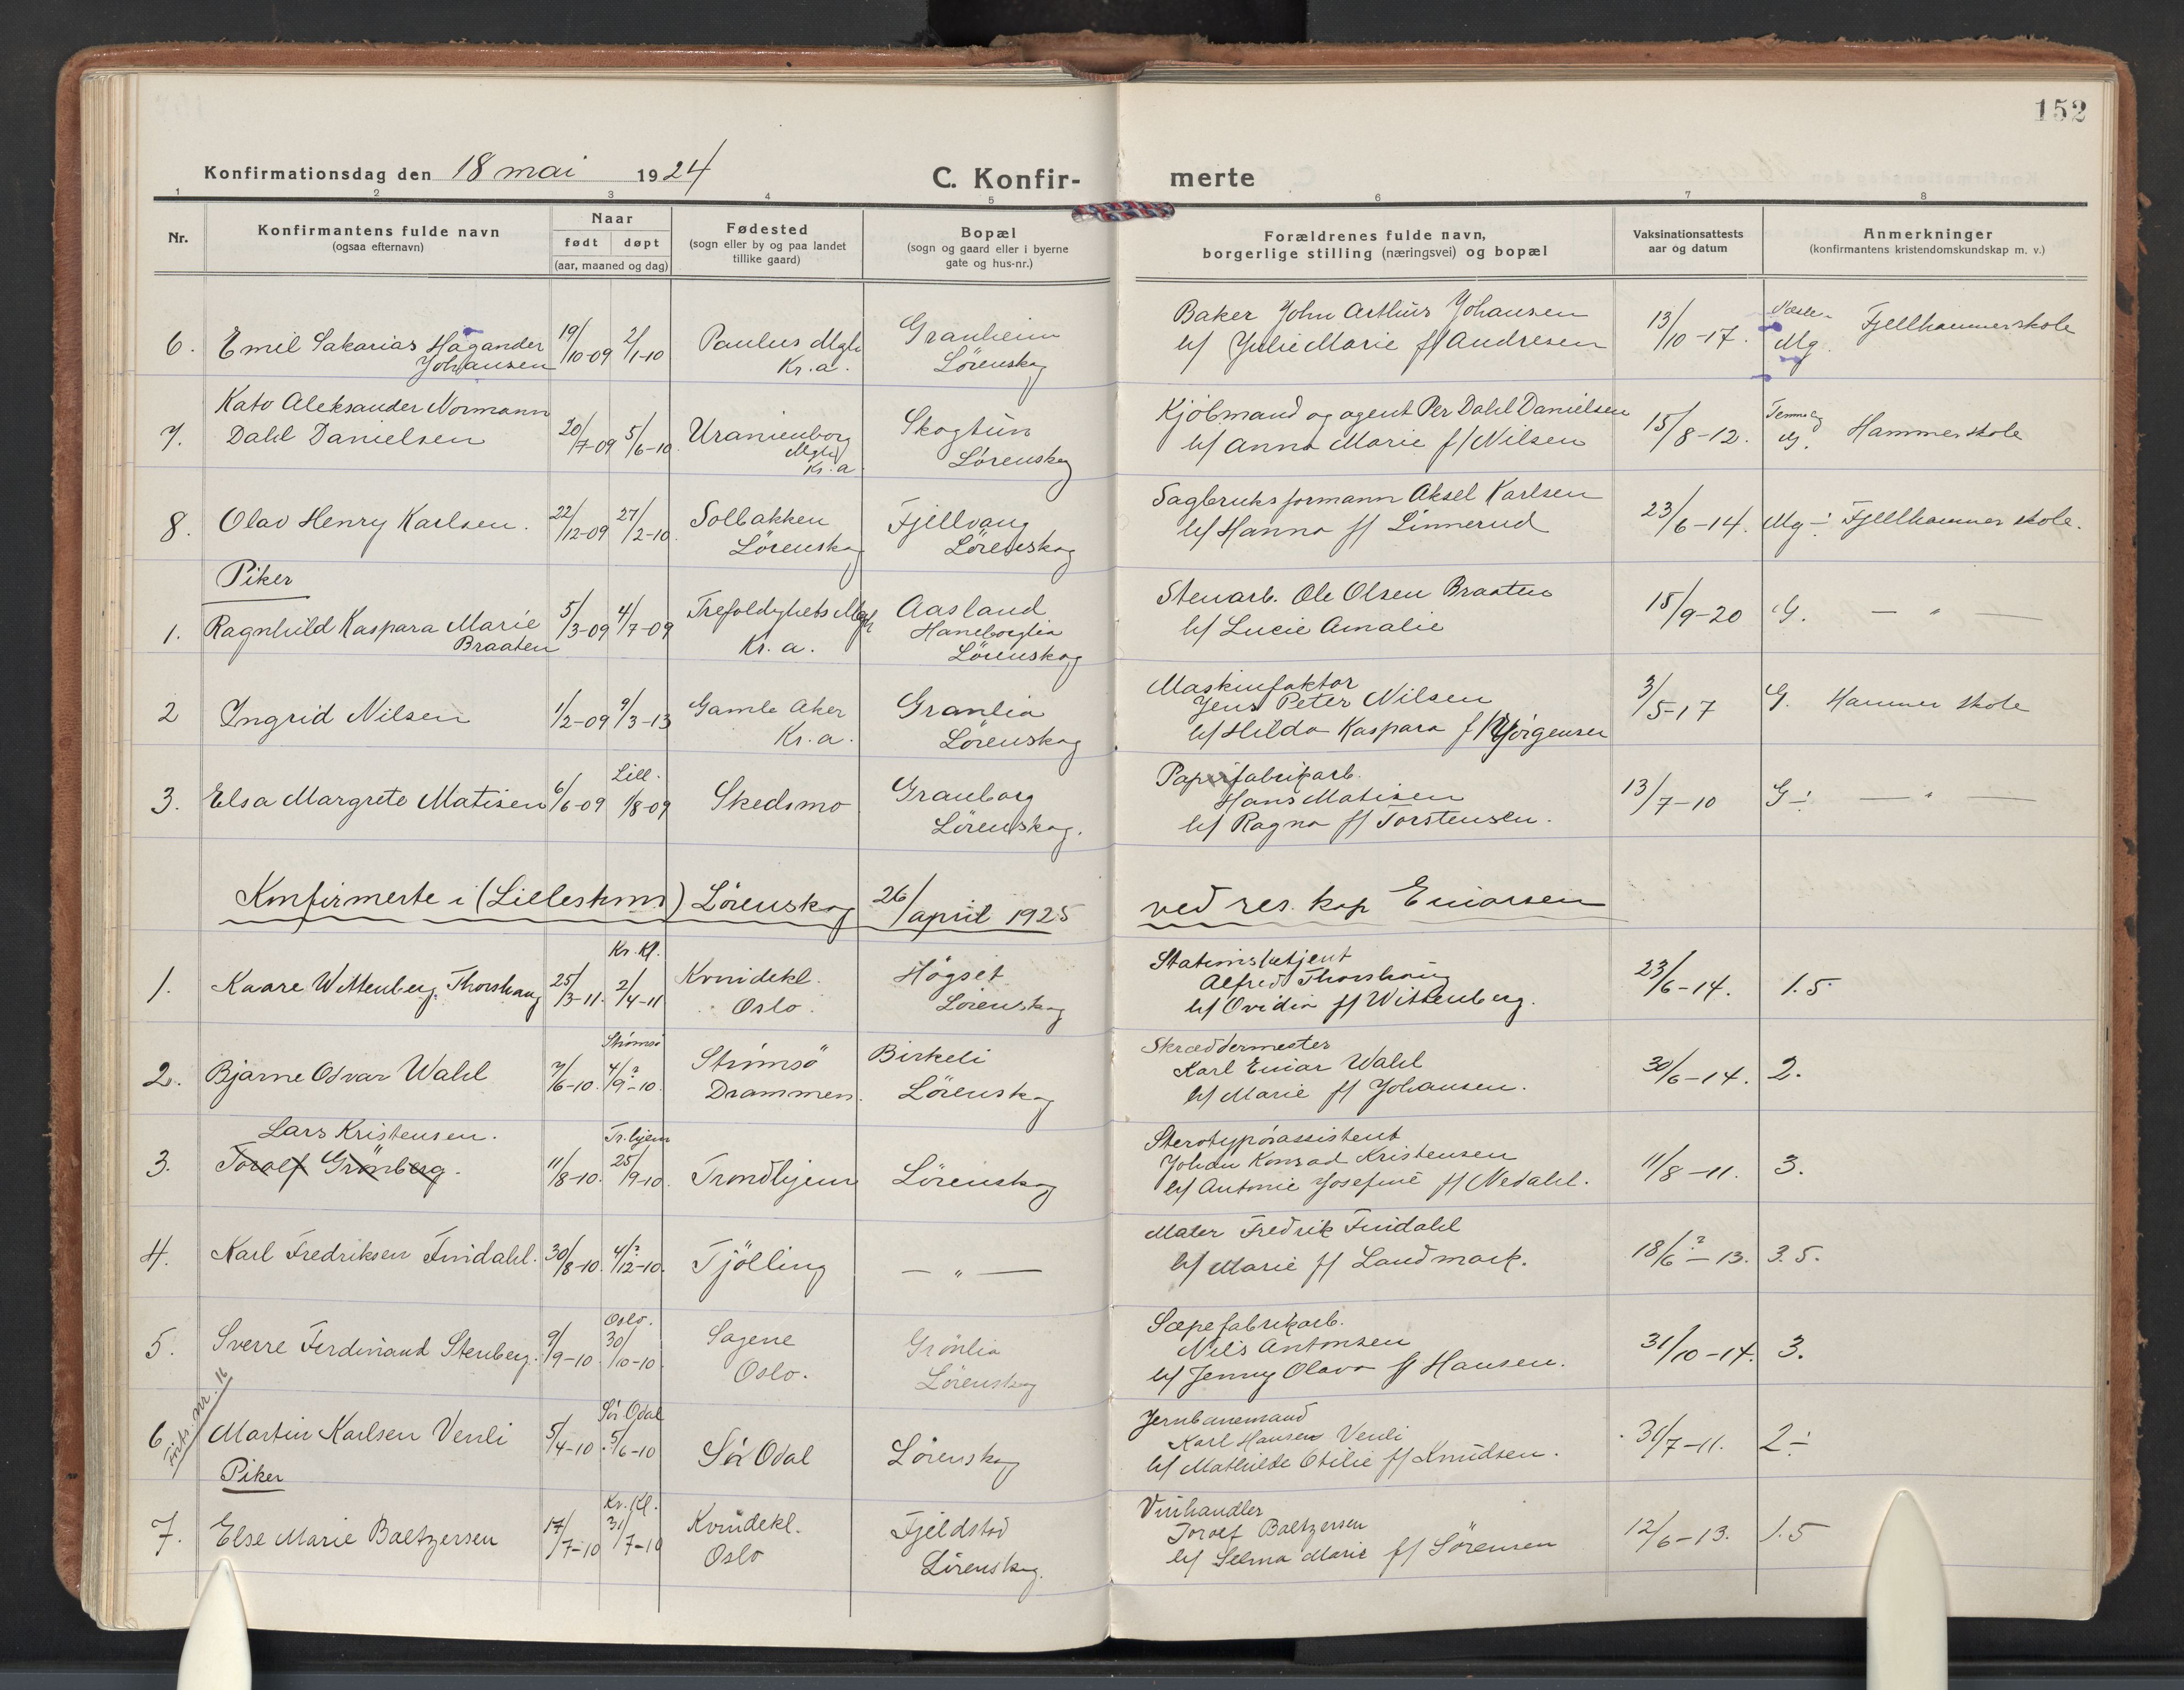 152
Konfirmationsdag den 18 mai 1924
C. Konfir- merte
1 2 3 4 5 6 7 8
Nr.
Konfirmantens fulde navn
(ogsaa efternavn)
Naar
født døpt
(aar, maaned og dag)
Fødested
(sogn eller by og paa landet
tillike gaard)
Bopæl
(sogn og gaard eller i byerne
gate og hus-nr.)
Forældrenes fulde navn,
borgerlige stilling (næringsvei) og bopæl
Vaksinationsattests
aar og datum
Anmerkninger
(konfirmantens kristendomskundskap m. v.)
6. Emil Sakarias Hågander
Johansen
19/10-09 2/1-10
Paulus Mgh
Kr.a.
Granheim
Lörenskog
Baker John Arthur Johansen
h/ Julie Marie f/ Andresen
13/10-17.
Mg. Fjellhammer skole
7. Kato Aleksander Normann
Dahl Danielsen
20/7-09 5/6-10.
Uranienborg
Mgh
Kr.a
Skogtun
Lörenskog
Kjöbmand og agent Per Dahl Danielsen
h/ Anna Marie f/ Nilsen
15/8-12.
Temmelig
M. Hammer skole
8. Olav Henry Karlsen.
22/12-09 27/2-10.
Solbakken
Lörenskog
Fjellvang
Lörenskog
Sagbruksformann Aksel Karlsen
h/ Hanna f/ Linnerud
23/6-14.
Mg ÷ Fjellhammer skole.
Piker
1. Ragnhild Kaspara Marie
Braaten
5/3-09 4/7-09
Trefoldighets Mgh
Kr. a.
Aasland
Haneborglia
Lörenskog
Stenarb. Ole Olsen Braaten
h/ Lucie Amalie
15/9-20
G. — " —
2 Ingrid Nilsen
1/2-09 9/3-13
Gamle Aker
Kr.a.
Granlia
Lörenskog
Maskinfaktor
Jens Peter Nilsen
h/ Hilda Kaspara f/ Jörgensen
3/5-17
G. Hammer skole
3. Elsa Margrete Matisen
6/6-09 Lill. 1/8-09
Skedsmo
Granborg
Lörenskog.
Papirfabrikarb.
Hans Matisen
h/ Ragna f/ Torstensen.
13/7-10
G ÷ — " —
Konfirmerte i (Lilleström) Lörenskog 26/april 1925 ved res. kap Einarsen
1. Kaare Wittenberg Thorshaug
25/3-11. Kr. Kl. 2/4-11
Kvindekl.
Oslo.
Högset
Lörenskog
Stationsbetjent
Alfred Thorshaug
h/ Ovidia f/ Wittenberg.
23/6-14.
1.5
2. Bjarne Odvar Wahl
7/6-10. Strömsö 4/9?-10.
Strömsö
Drammen.
Birkeli
Lörenskog
Skræddermester
Karl Einar Wahl
h/ Marie f/ Johansen.
30/6-14.
2.
3. Lars Kristensen.
Torolf Grönberg.
11/8-10. Tr.hjem 25/9-10.
Trondhjem
Lörenskog
Sterotypörassistent
Johan Konrad Kristensen
h/ Antonie Josefine f/ Nedahl.
11/8-11.
3.
4. Karl Fredriksen Findahl.
30/8-10. 4/12?-10.
Tjölling
— " —
Maler Fredrik Findahl
h/ Marie f/ Landmark.
18/6?-13.
3.5.
5. Sverre Ferdinand Stenberg.
9/9-10 Oslo. 30/10-10.
Sagene
Oslo.
Grönlia
Lörenskog
Sæpefabrikarb.
Nils Antonsen
h/ Jenny Olava f/ Hansen.
31/10-14.
3.
Forts. nr. 16
6 Martin Karlsen Venli
5/4-10. Sör Odal 5/6-10
Sör Odal
Lörenskog
Jernbanemand
Karl Hansen Venli
h/ Mathilde Otilie f/ Knudsen.
31/7-11.
2 ÷
Piker
7. Else Marie Baltzersen
17/7-10 Kr. Kl. 31/7-10
Kvindekl.
Oslo
Fjeldstad
Lörenskog.
Vinhandler
Torolf Baltzersen
h/ Selma Marie f/ Sörensen
12/6-13.
1.5